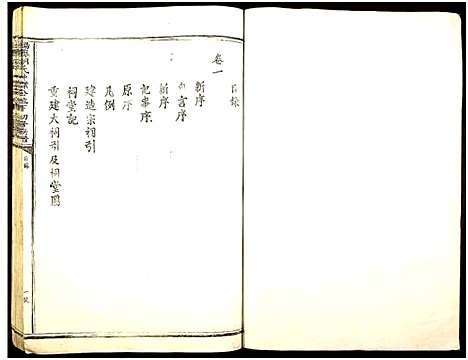 目錄
卷一
新序
弁言序
新序
記事序
原序
凡例
建造宗祠引
祠堂記
重建大祠引及祠堂圖
目錄